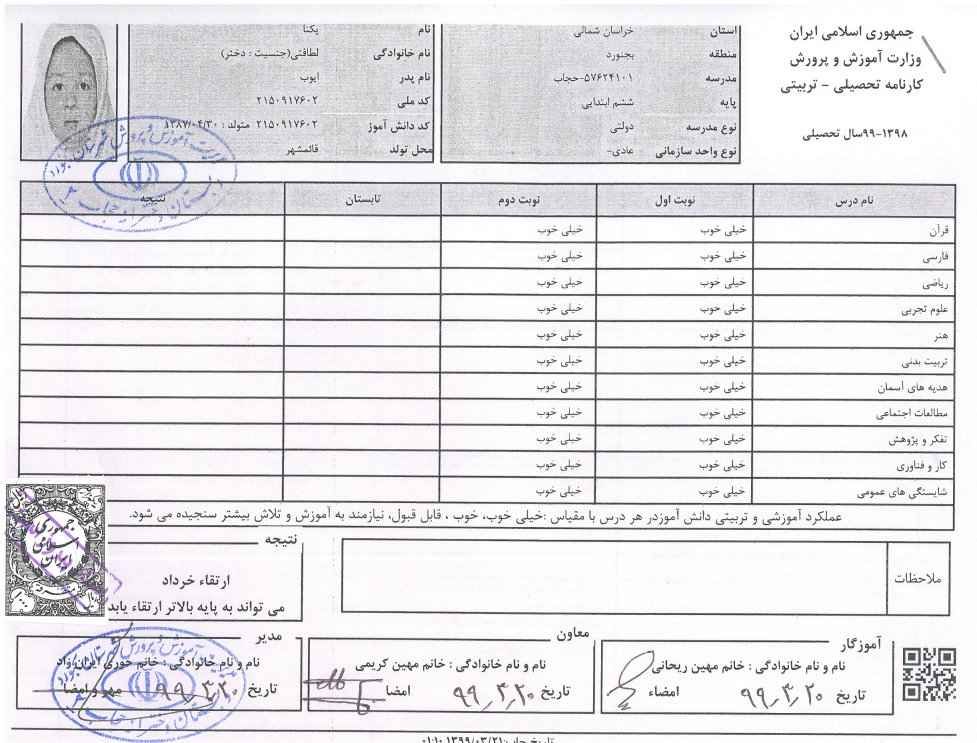 جمهوری اسلامی ایران
وزارت آموزش و پرورش
کارنامه تحصیلی - تربیتی
۱۳۹۸-۹۹سال تحصیلی
استان خراسان شمالی
منطقه بجنورد
مدرسه ۵۷۶۲۴۱۰۱-حجاب
پایه ششم ابتدایی
نوع مدرسه دولتی
نوع واحد سازمانی عادی-
نام یکتا
نام خانوادگی لطافتی(جنسیت : دختر)
نام پدر ایوب
کد ملی ۲۱۵۰۹۱۷۶۰۲
کد دانش آموز ۲۱۵۰۹۱۷۶۰۲ متولد : ۱۳۸۷/۰۴/۳۰
محل تولد قائمشهر
نام درس نوبت اول نوبت دوم تابستان نتیجه
قرآن خیلی خوب خیلی خوب
فارسی خیلی خوب خیلی خوب
ریاضی خیلی خوب خیلی خوب
علوم تجربی خیلی خوب خیلی خوب
هنر خیلی خوب خیلی خوب
تربیت بدنی خیلی خوب خیلی خوب
هدیه های آسمان خیلی خوب خیلی خوب
مطالعات اجتماعی خیلی خوب خیلی خوب
تفکر و پژوهش خیلی خوب خیلی خوب
کار و فناوری خیلی خوب خیلی خوب
شایستگی های عمومی خیلی خوب خیلی خوب
عملکرد آموزشی و تربیتی دانش آموزدر هر درس با مقیاس :خیلی خوب، خوب ، قابل قبول، نیازمند به آموزش و تلاش بیشتر سنجیده می شود.
ملاحظات
نتیجه
ارتقاء خرداد
می تواند به پایه بالاتر ارتقاء یابد
جمهوری
اسلامی
ایران
آموزگار
نام و نام خانوادگی : خانم مهین ریحانی
تاریخ ۹۹,۳,۲۰ امضاء
معاون
نام و نام خانوادگی : خانم مهین کریمی
تاریخ ۹۹,۳,۲۰ امضا
مدیر
نام و نام خانوادگی : خانم حوری ایران‌زاد
تاریخ ۹۹,۳,۲۰ مهر و امضا
تاریخ چاپ:۱۳۹۹/۰۳/۲۱ ۰۱:۱۰